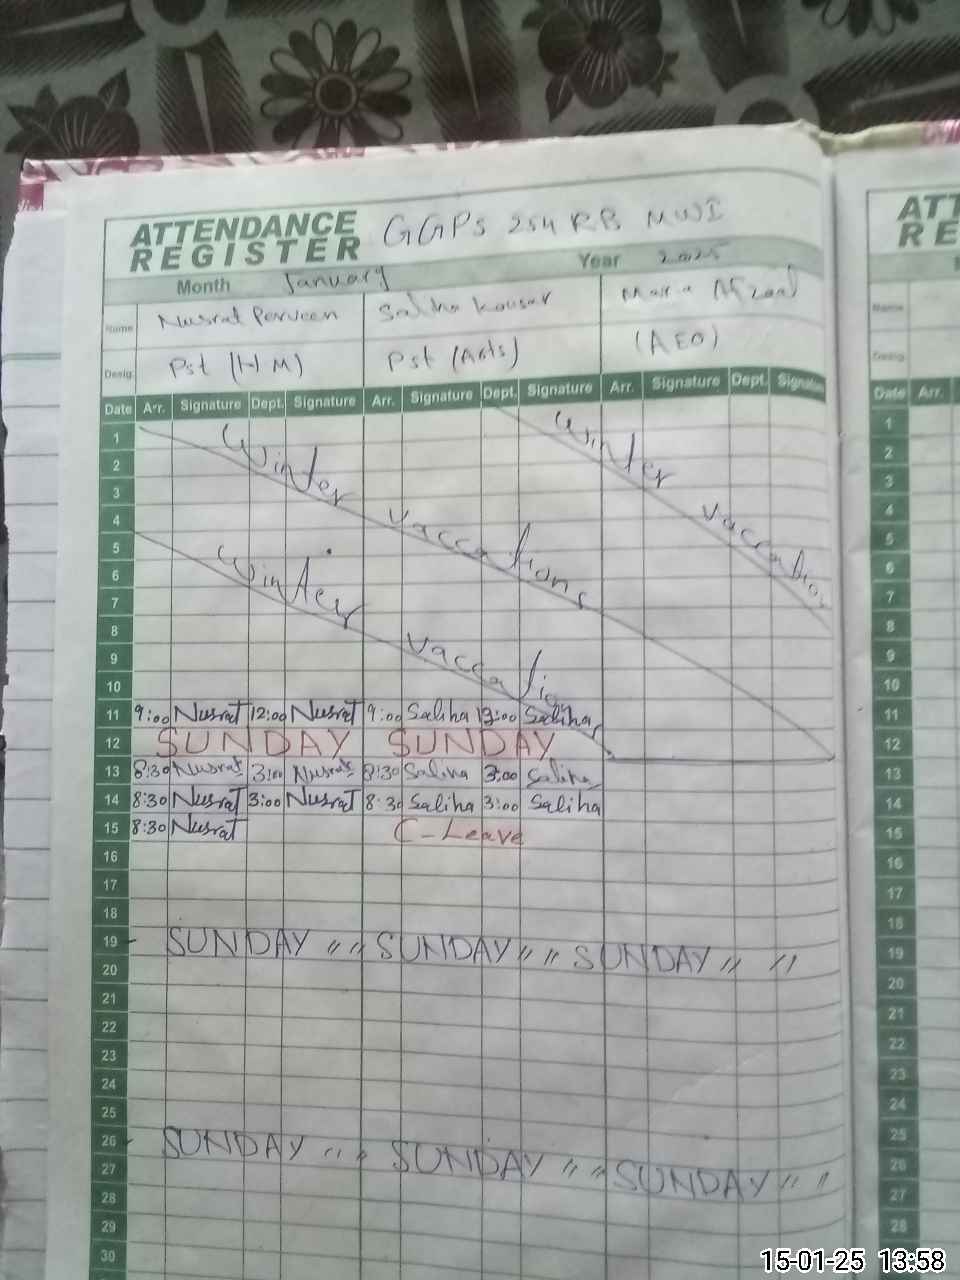 ATTENDANCE REGISTER GGPS 254 RB MWI
Month January Year 2025
Name Nusrat Perveen Saliha Kousar Maria Afzaal
Desig. Pst (HM) Pst (Arts) (AEO)
Date Arr. Signature Dept. Signature Arr. Signature Dept. Signature Arr. Signature Dept. Signature
1 Winter vaccations
2 Winter
3
4 vaccations
5
6 Winter
7
8
9 vaccations
10
11 9:00 Nusrat 12:00 Nusrat 9:00 Saliha 12:00 Saliha
12 SUNDAY SUNDAY
13 8:30 Nusrat 3:00 Nusrat 8:30 Saliha 3:00 Saliha
14 8:30 Nusrat 3:00 Nusrat 8:30 Saliha 3:00 Saliha
15 8:30 Nusrat C-Leave
16
17
18
19 SUNDAY " " SUNDAY " " SUNDAY " "
20
21
22
23
24
25
26 SUNDAY " " SUNDAY " " SUNDAY " "
27
28
29
30
ATT
RE
Name
Desig.
Date Arr.
1
2
3
4
5
6
7
8
9
10
11
12
13
14
15
16
17
18
19
20
21
22
23
24
25
26
27
28
15-01-25 13:58